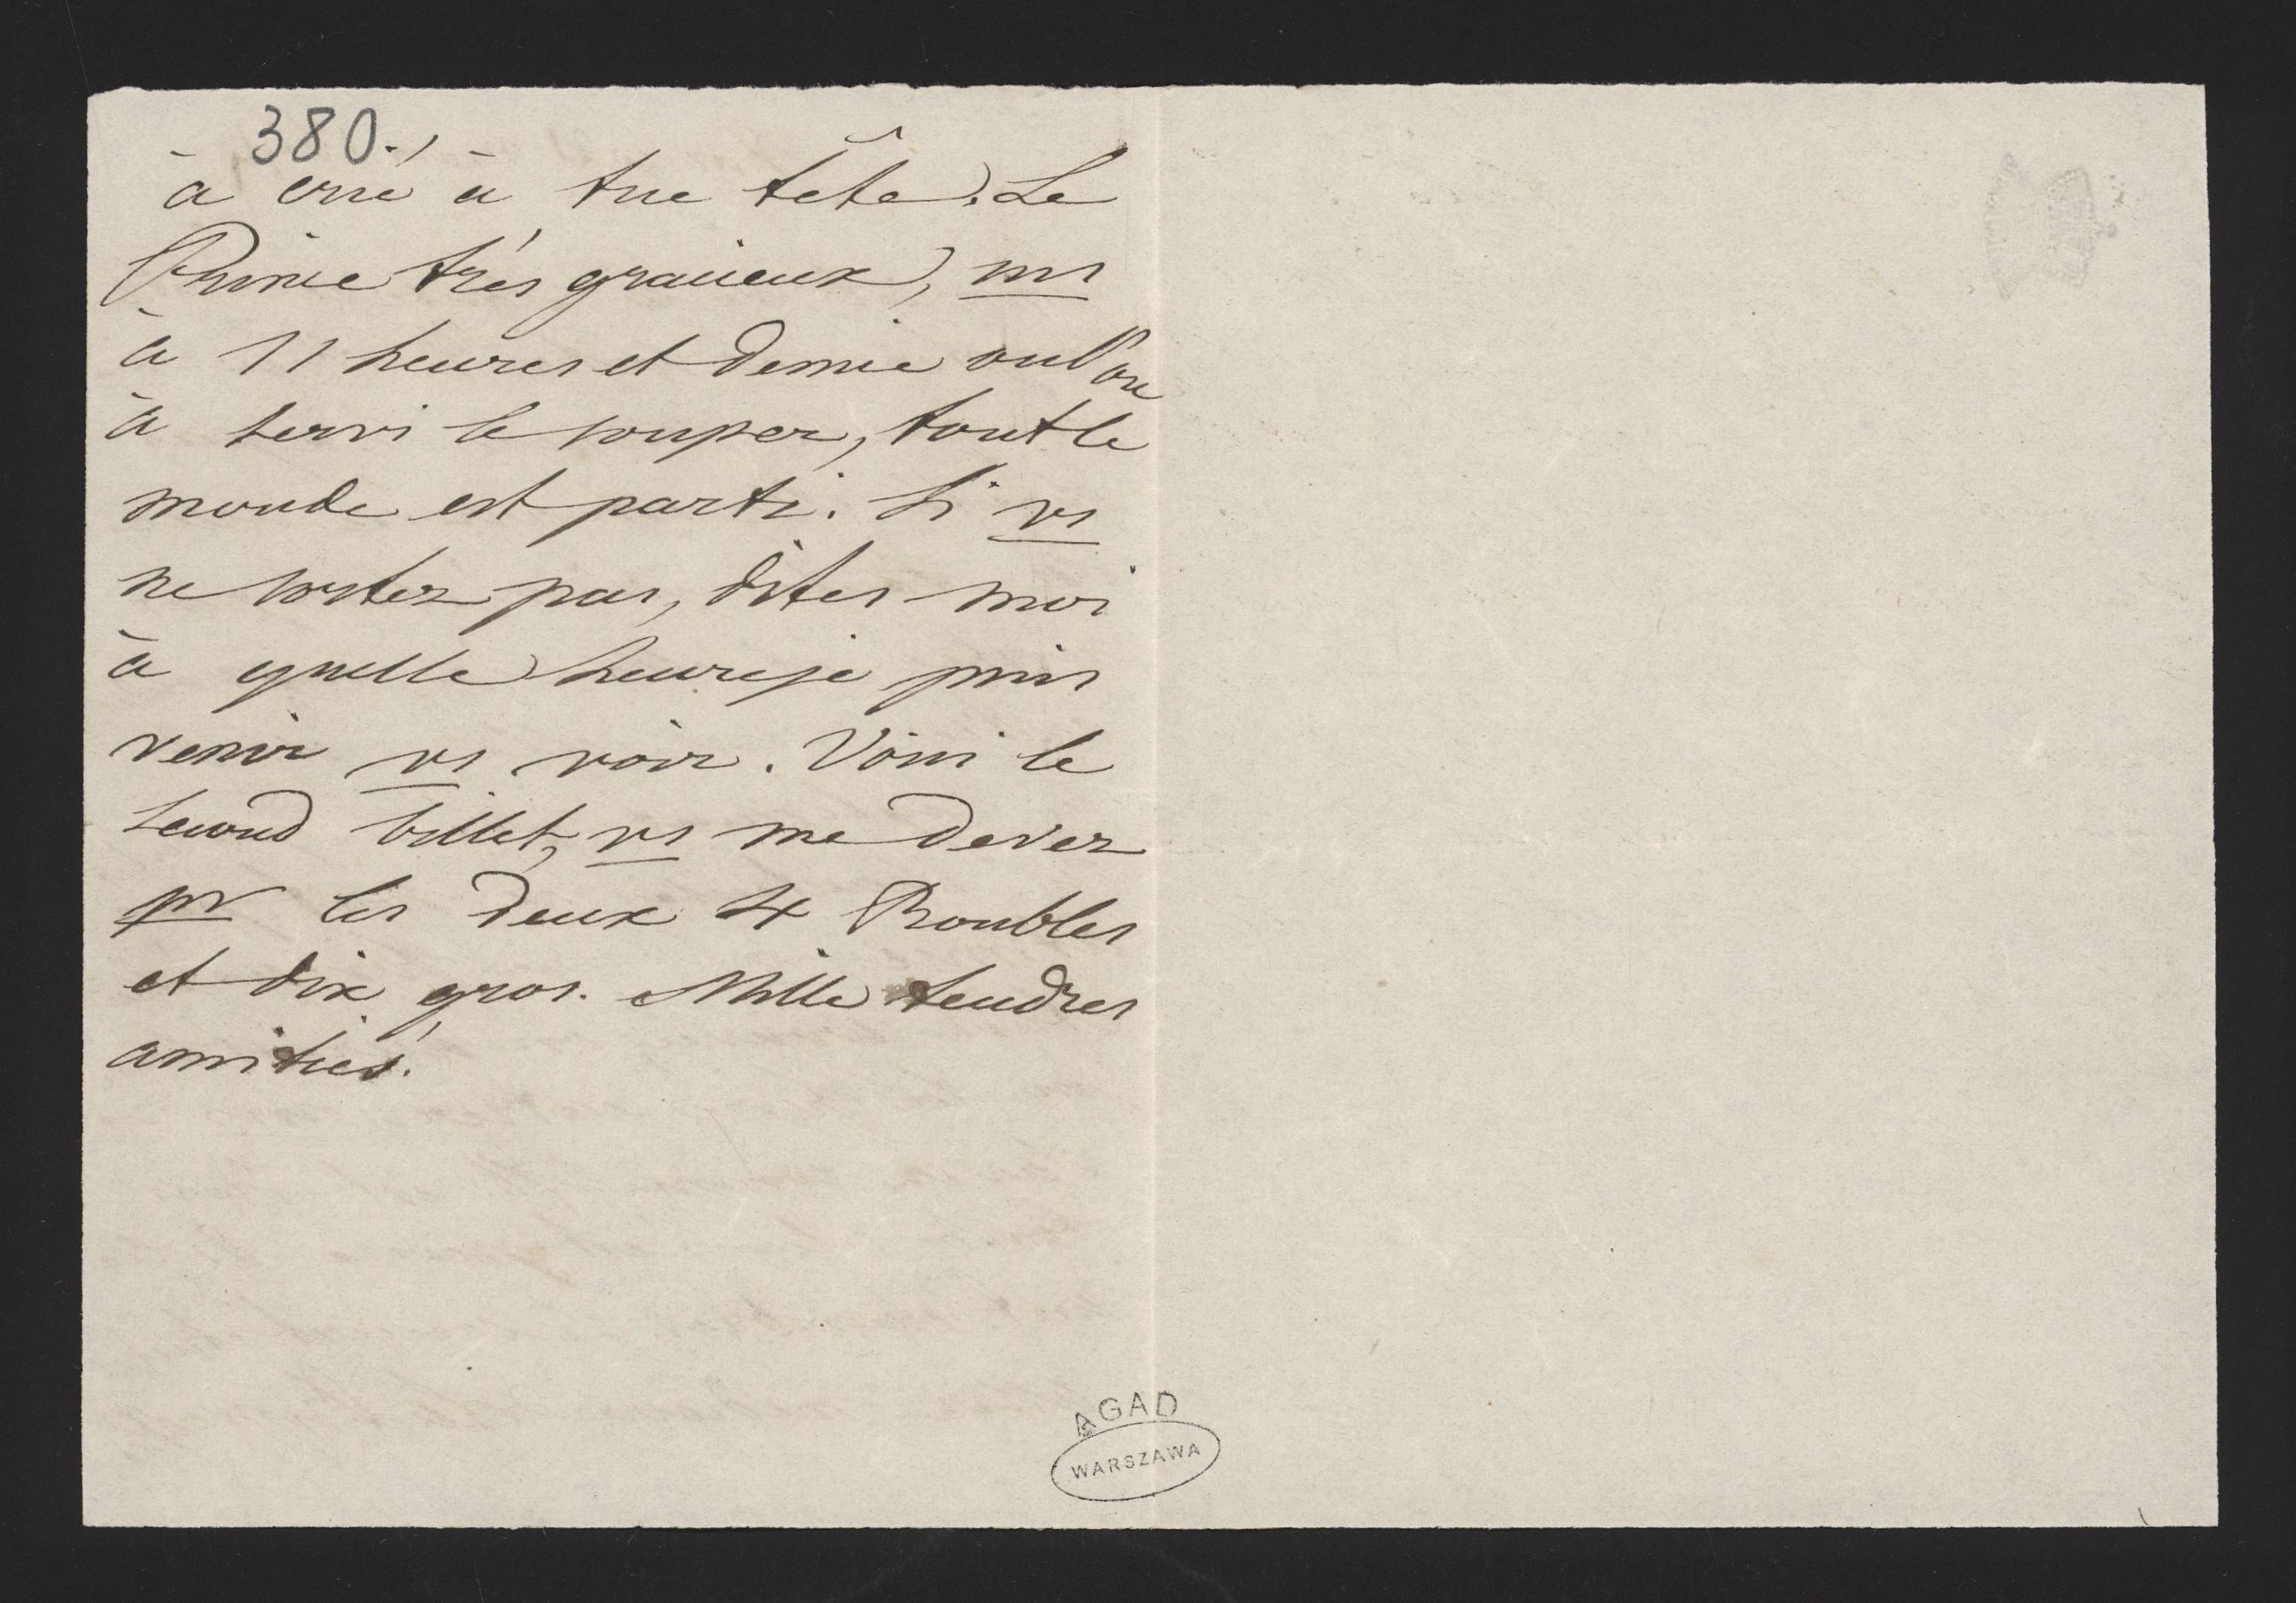 380.
à crié à tue tête. Le
Prince très gracieux, ms
à 11 heures et demie oul'on
à servi le souper, tout le
monde est parti. Si vs
ne sortez pas, dites moi
à quelle heure je puis
venir vs voir. Voici le
second billet, vs me devez
pr les deux 4 Roubles
et dix gros. Mille tendres
amitiés.
AGAD
WARSZAWA